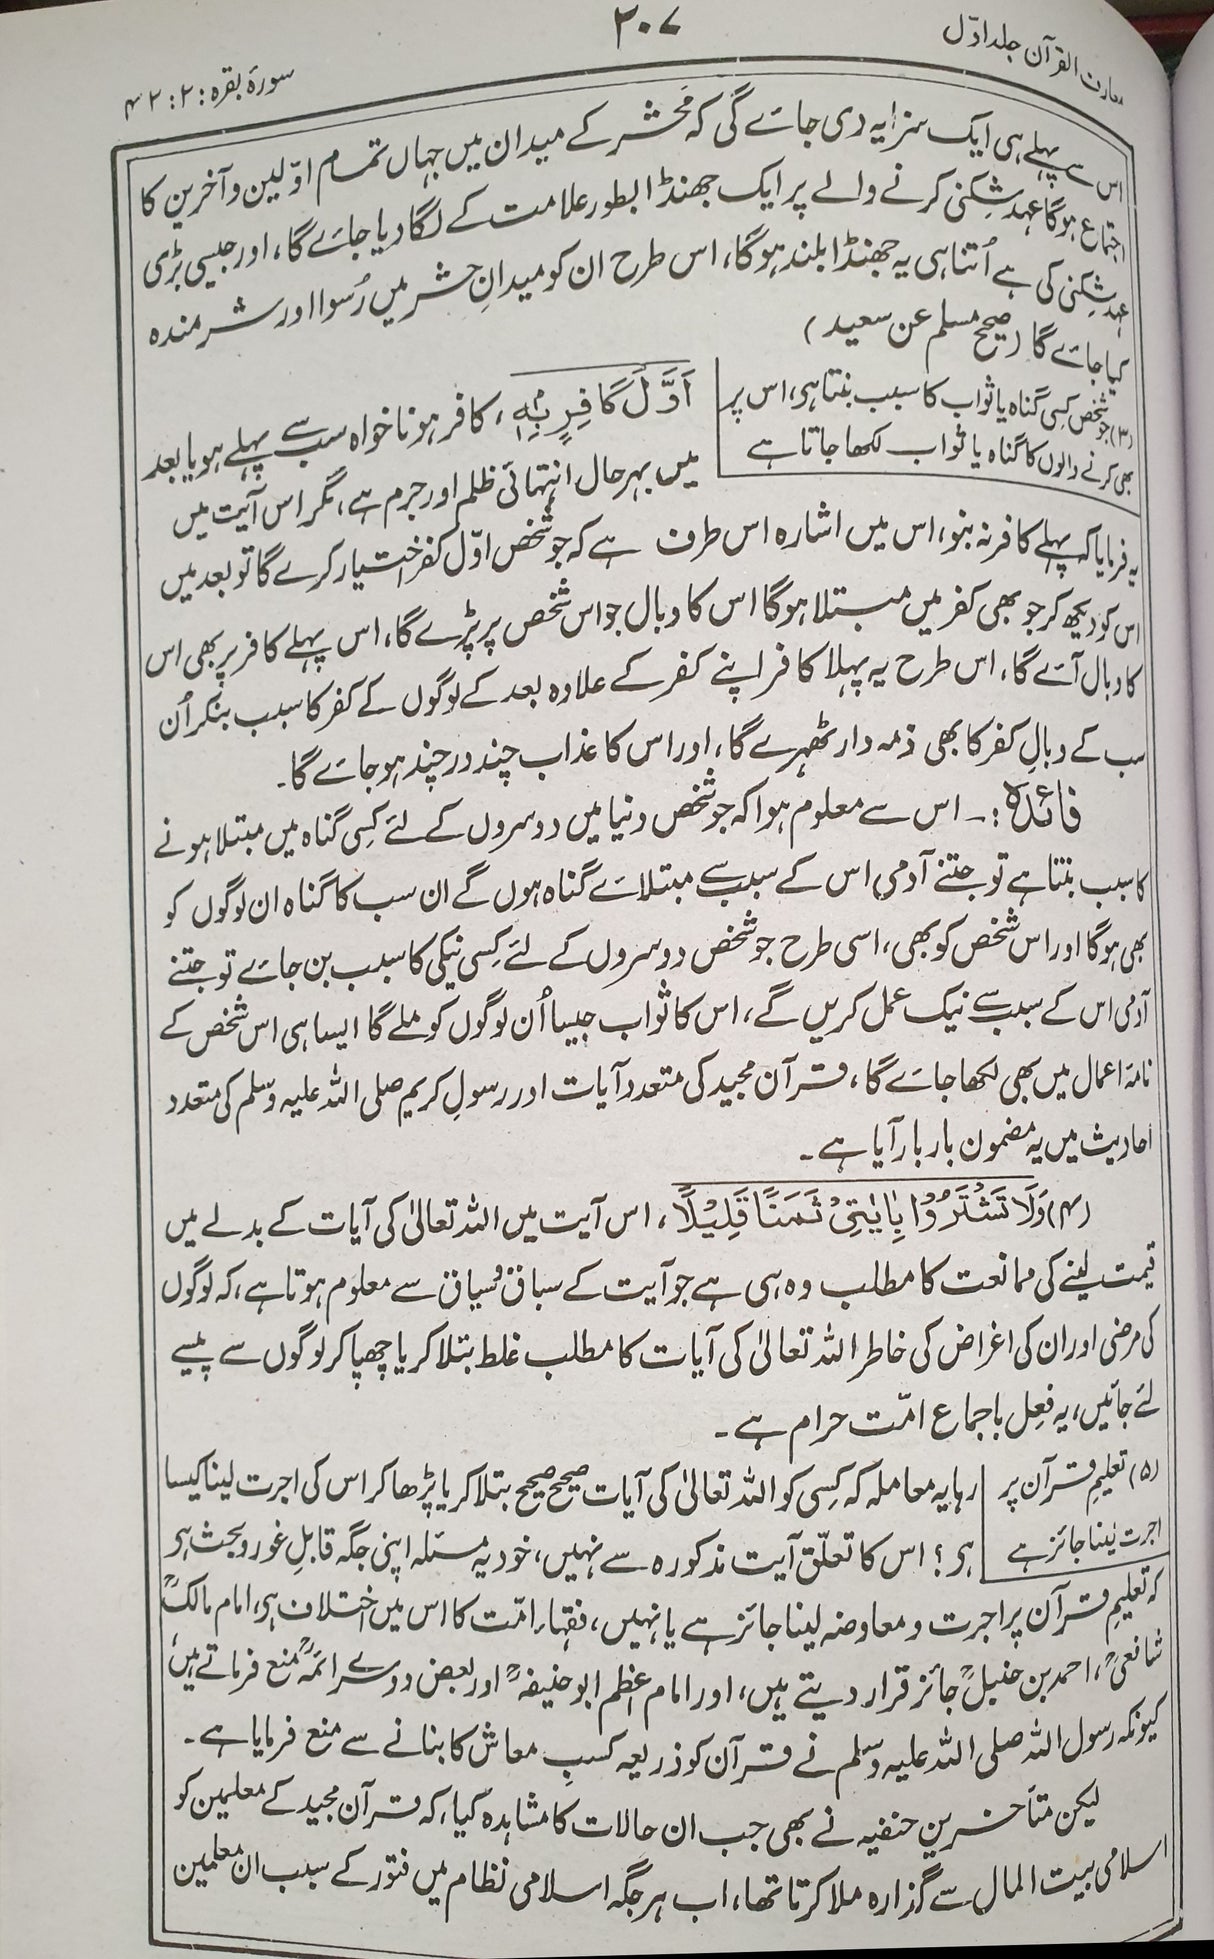 معارف القرآن جلد اوّل
۲۰۷
سورۂ بقرہ : ۲ : ۴۲
اس سے پہلے ہی ایک سزا یہ دی جائے گی کہ محشر کے میدان میں جہاں تمام اوّلین و آخرین کا
اجتماع ہوگا عہد شِکنی کرنے والے پر ایک جھنڈا بطور علامت کے لگا دیا جائے گا، اور جیسی بڑی
عہد شِکنی کی ہے اُتنا ہی یہ جھنڈا بلند ہوگا، اس طرح ان کو میدانِ حشر میں رُسوا اور شرمندہ
کیا جائے گا (صحیح مسلم عن سعید)
(۳) جو شخص کسی گناہ یا ثواب کا سبب بنتا ہی، اس پر
بھی کرنے والوں کا گناہ یا ثواب لکھا جاتا ہے
اَوَّلَ كَافِرٍ بِهٖ، کافر ہونا خواہ سب سے پہلے ہو یا بعد
میں بہر حال انتہائی ظلم اور جرم ہے، مگر اس آیت میں
یہ فرمایا کہ پہلے کافر نہ بنو، اس میں اشارہ اس طرف ہے کہ جو شخص اوّل کفر اختیار کرے گا تو بعد میں
اس کو دیکھ کر جو بھی کفر میں مبتلا ہوگا اس کا وبال جو اس شخص پر پڑے گا، اس پہلے کافر پر بھی اس
کا وبال آئے گا، اس طرح یہ پہلا کافر اپنے کفر کے علاوہ بعد کے لوگوں کے کفر کا سبب بنکر اُن
سب کے وبالِ کفر کا بھی ذمہ دار ٹھہرے گا، اور اس کا عذاب چند در چند ہو جائے گا۔
فائدہ :۔ اس سے معلوم ہوا کہ جو شخص دنیا میں دوسروں کے لئے کِسی گناہ میں مبتلا ہونے
کا سبب بنتا ہے تو جتنے آدمی اس کے سبب سے مبتلائے گناہ ہوں گے ان سب کا گناہ ان لوگوں کو
بھی ہوگا اور اس شخص کو بھی، اسی طرح جو شخص دوسروں کے لئے کِسی نیکی کا سبب بن جائے تو جتنے
آدمی اس کے سبب سے نیک عمل کریں گے، اس کا ثواب جیسا اُن لوگوں کو ملے گا ایسا ہی اس شخص کے
نامۂ اعمال میں بھی لکھا جائے گا، قرآن مجید کی متعدد آیات اور رسولِ کریم صلی اللہ علیہ وسلّم کی متعدد
احادیث میں یہ مضمون بار بار آیا ہے۔
(۴) وَلَا تَشْتَرُوْا بِاٰيٰتِىْ ثَمَنًا قَلِيْلًا، اس آیت میں اللہ تعالیٰ کی آیات کے بدلے میں
قیمت لینے کی ممانعت کا مطلب وہ ہی ہے جو آیت کے سباق و سیاق سے معلوم ہوتا ہے، کہ لوگوں
کی مرضی اور ان کی اغراض کی خاطر اللہ تعالیٰ کی آیات کا مطلب غلط بتلا کر یا چھپا کر لوگوں سے پیسے
لئے جائیں، یہ فعِل باجماع امّت حرام ہے۔
(۵) تعلیمِ قرآن پر
اجرت لینا جائز ہے
رہا یہ معاملہ کہ کِسی کو اللہ تعالیٰ کی آیات صحیح صحیح بتلا کر یا پڑھا کر اس کی اجرت لینا کیسا
ہی؟ اس کا تعلّق آیت مذکورہ سے نہیں، خود یہ مسئلہ اپنی جگہ قابلِ غور و بحث ہی
کہ تعلیمِ قرآن پر اجرت و معاوضہ لینا جائز ہے یا نہیں، فقہاء امّت کا اس میں اختلاف ہی، امام مالکؒ
شافعیؒ، احمد بن حنبلؒ جائز قرار دیتے ہیں، اور امام اعظم ابو حنیفہؒ اور بعض دوسرے ائمہؒ منع فرماتے ہیں
کیونکہ رسول اللہ صلی اللہ علیہ وسلّم نے قرآن کو ذریعہ کسبِ معاش کا بنانے سے منع فرمایا ہے۔
لیکن متأخرین حنفیہ نے بھی جب ان حالات کا مشاہدہ کیا، کہ قرآن مجید کے معلمین کو
اسلامی بیت المال سے گزارہ ملا کرتا تھا، اب ہر جگہ اسلامی نظام میں فتور کے سبب ان معلمین